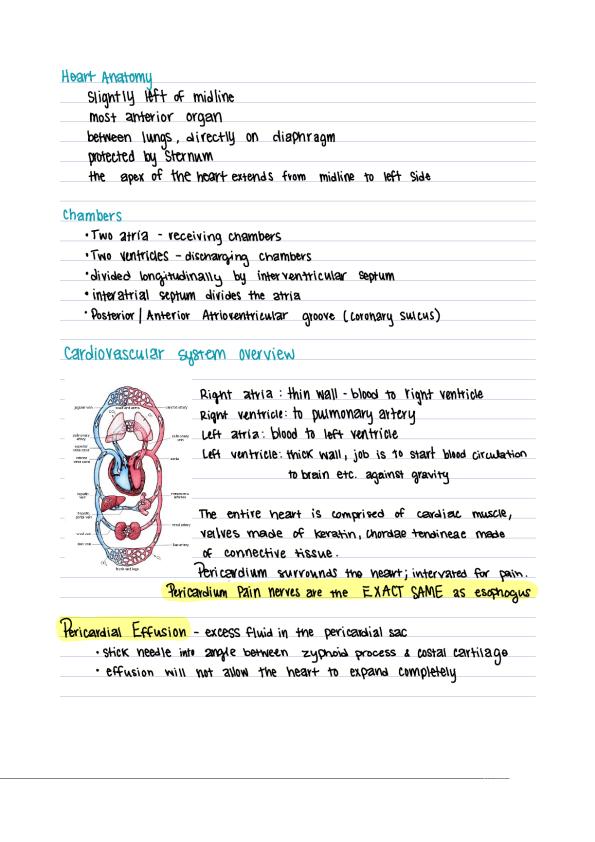 Heart Anatomy
Slightly left of midline
most anterior organ
between lungs, directly on diaphragm
protected by Sternum
the apex of the heart extends from midline to left side
Chambers
• Two atria - receiving chambers
• Two ventricles - discharging chambers
• divided longitudinally by interventricular septum
• interatrial septum divides the atria
• Posterior | Anterior Atrioventricular groove (coronary sulcus)
Cardiovascular system overview
Right atria : thin wall - blood to right ventricle
Right ventricle: to pulmonary artery
Left atria: blood to left ventricle
Left ventricle: thick wall, job is to start blood circulation
to brain etc. against gravity
The entire heart is comprised of cardiac muscle,
valves made of keratin, chordae tendineae made
of connective tissue.
Pericardium surrounds the heart; intervated for pain.
Pericardium Pain nerves are the EXACT SAME as esophogus
jugular vein
carotid artery
pulmonary
artery
pulmonary
vein
superior
vena cava
inferior
vena cava
aorta
hepatic
vein
mesenteric
arteries
hepatic
portal vein
renal artery
renal vein
iliac vein
iliac artery
Pericardial Effusion - excess fluid in the pericardial sac
• stick needle into angle between zyphoid process & costal cartilage
• effusion will not allow the heart to expand completely